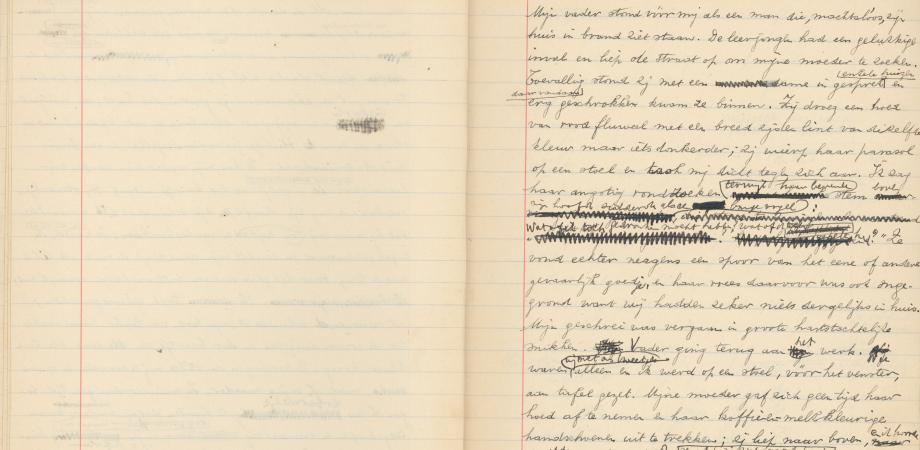 Mijn vader stond vóór mij als een man die, machteloos, zijn
huis in brand ziet staan. De leerjongen had een gelukkige
inval en liep de straat op om mijne moeder te zoeken.
enkele huizen
Toevallig stond zij met een dame in gesprek en
daar vandaan
erg geschrokken kwam ze binnen. Zij droeg een hoed
van rood fluweel met een breed zijden lint van dezelfde
kleur maar iets donkerder; zij wierp haar parasol
op een stoel en mij dicht tegen zich aan. Ik zag
haar angstig rondzoeken terwijl haar bevende stem boven
mijn hoofd als een vogel:
Wat toch mocht hebben, wat of Ze
vond echter nergens een spoor van het eene of andere
gevaarlijk goedje, en haar vrees daarvoor was ook onge-
grond want wij hadden zeker niets dergelijks in huis.
Mijn geschrei was vergaan in groote hartstochtelijke
het
snikken. Vader ging terug aan werk.
wij met ons tweetjes
waren alleen en ik werd op een stoel, vóór het venster,
aan tafel gezet. Mijne moeder gaf zich geen tijd haar
hoed af te nemen en haar koffie-en-melkkleurige
handschoenen uit te trekken; zij liep naar boven,